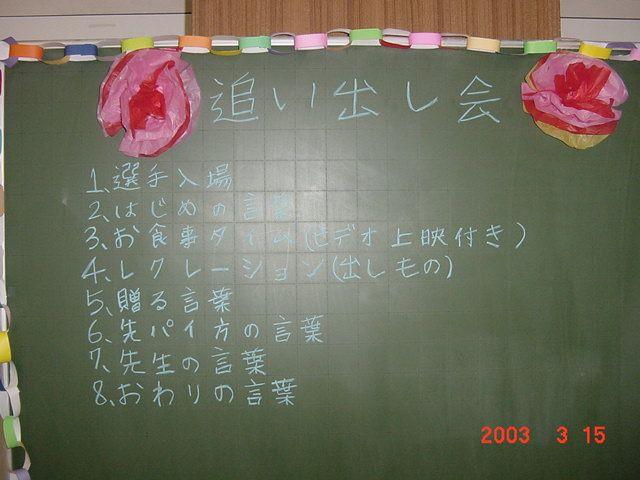 追い出し会
1.選手入場
2.はじめの言葉
3.お食事タイム(ビデオ上映付き)
4.レクレーション(出しもの)
5.贈る言葉
6.先パイ方の言葉
7.先生の言葉
8.おわりの言葉
2003 3 15